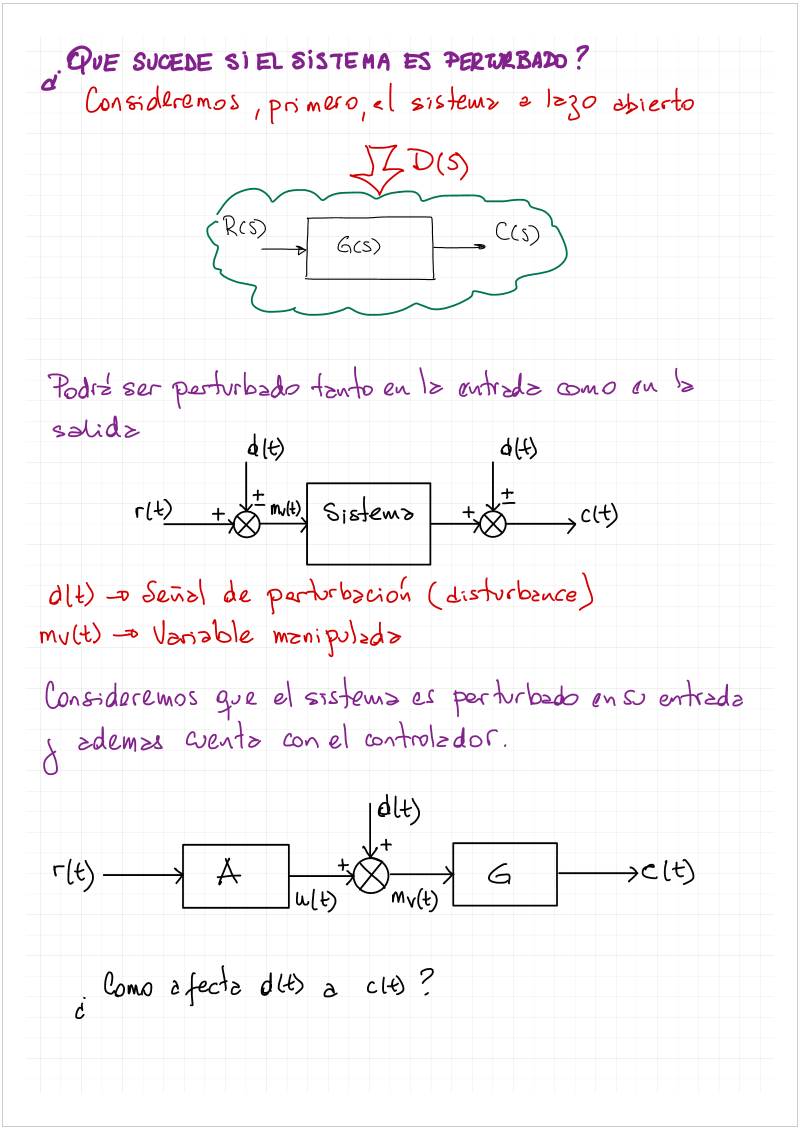 ¿QUE SUCEDE SI EL SISTEMA ES PERTURBADO?
Consideremos, primero, el sistema a lazo abierto
D(s)
R(s)
G(s)
C(s)
Podrá ser perturbado tanto en la entrada como en la
salida
d(t)
d(t)
r(t)
+
±
mv(t)
Sistema
+
±
c(t)
d(t) → Señal de perturbación (disturbance)
mv(t) → Variable manipulada
Consideremos que el sistema es perturbado en su entrada
y ademas cuenta con el controlador.
d(t)
r(t)
A
u(t)
+
+
mv(t)
G
c(t)
¿Como afecta d(t) a c(t)?